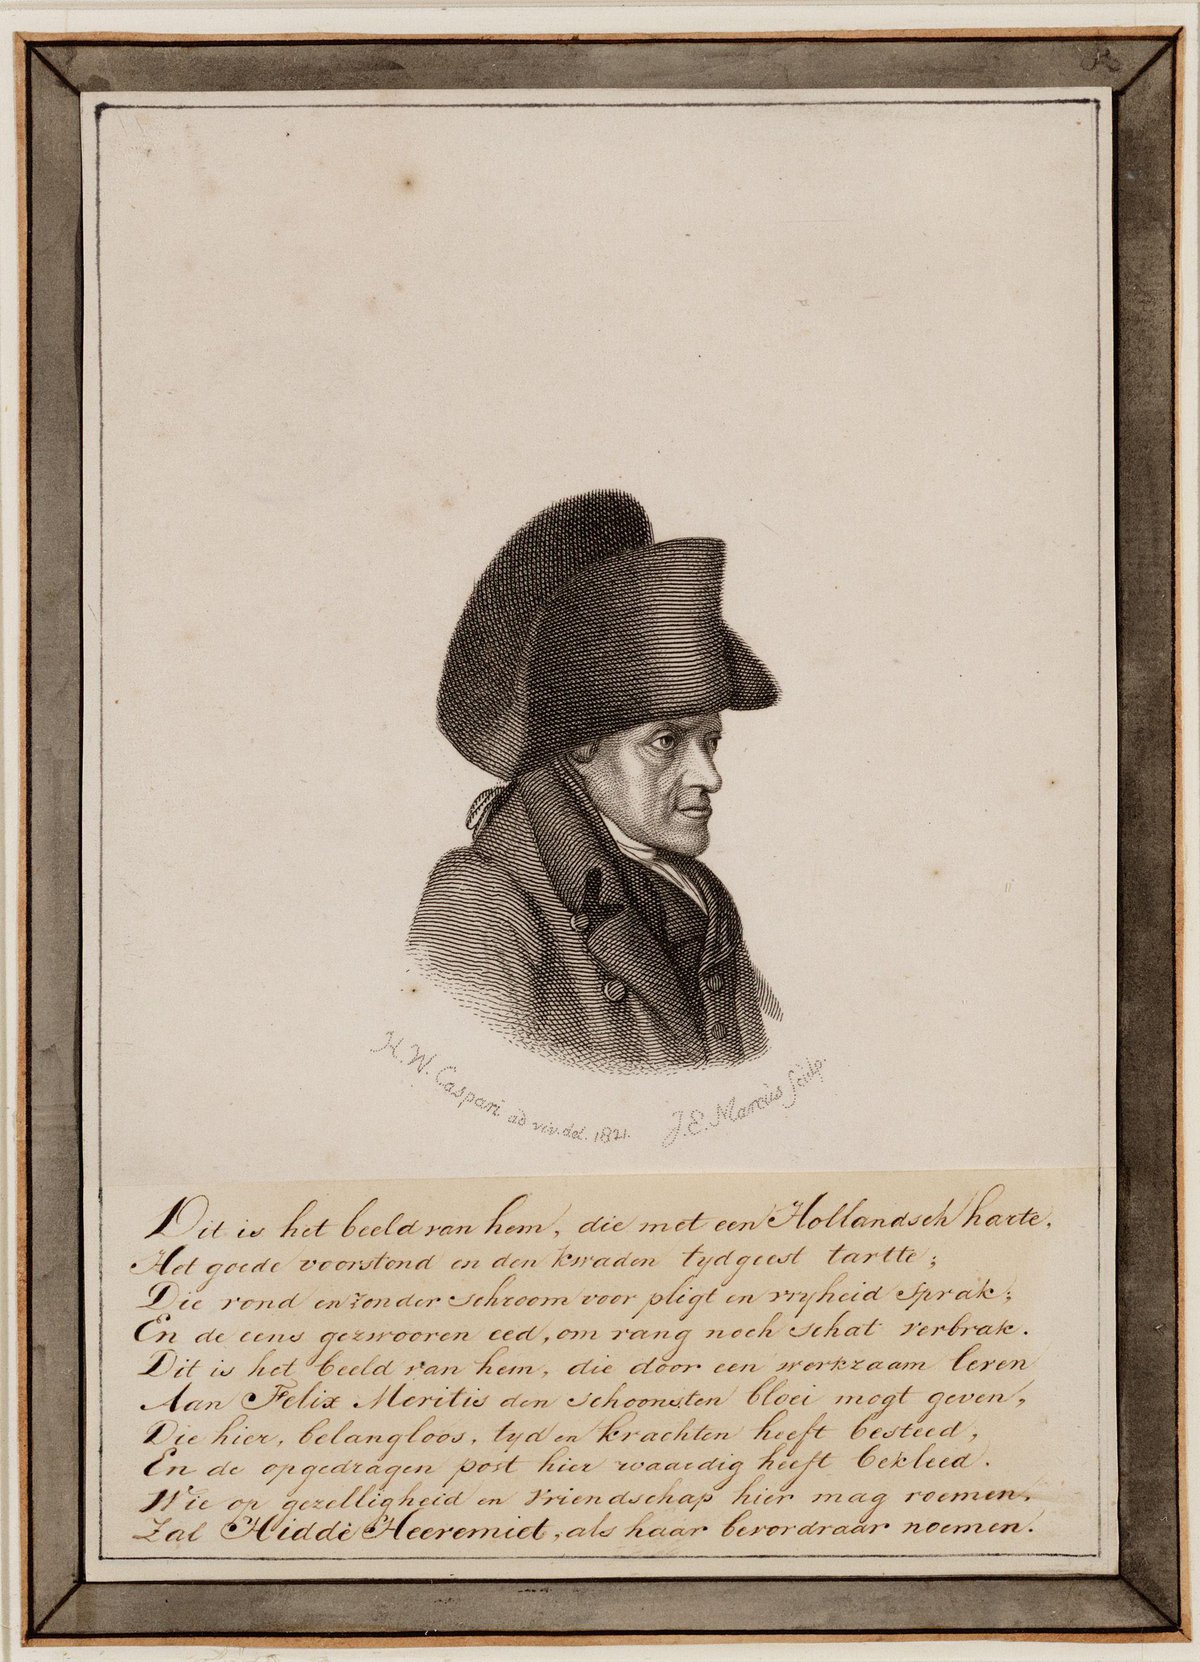 H. W. Caspari ad viv. del. 1821.
J. E. Marcus Sculp.
Dit is het beeld van hem, die met een Hollandsch harte,
Het goede voorstond en den kwaden tydgeest tartte;
Die rond en zonder schroom voor pligt en vryheid sprak;
En de eens gezwooren eed, om rang noch schat verbrak.
Dit is het beeld van hem, die door een werkzaam leven
Aan Felix Meritis den schoonsten bloei mogt geven,
Die hier, belangloos, tyd en krachten heeft besteed,
En de opgedragen post hier waardig heeft bekleed.
Wie op gezelligheid en vriendschap hier mag roemen,
Zal Hidde Heeremiet, als haar bevordraar noemen.